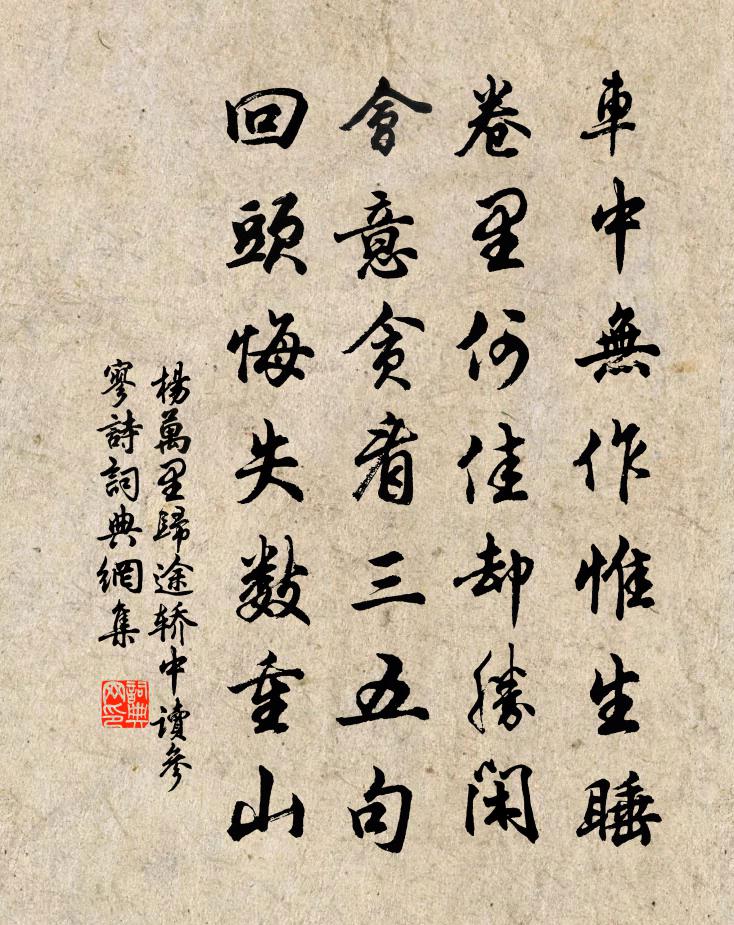 車中無作惟生睡
卷里何佳却勝閑
會意貪看三五句
回頭悔失數重山
楊萬里歸途轿中讀參
寥詩詞典網集
詞典网印